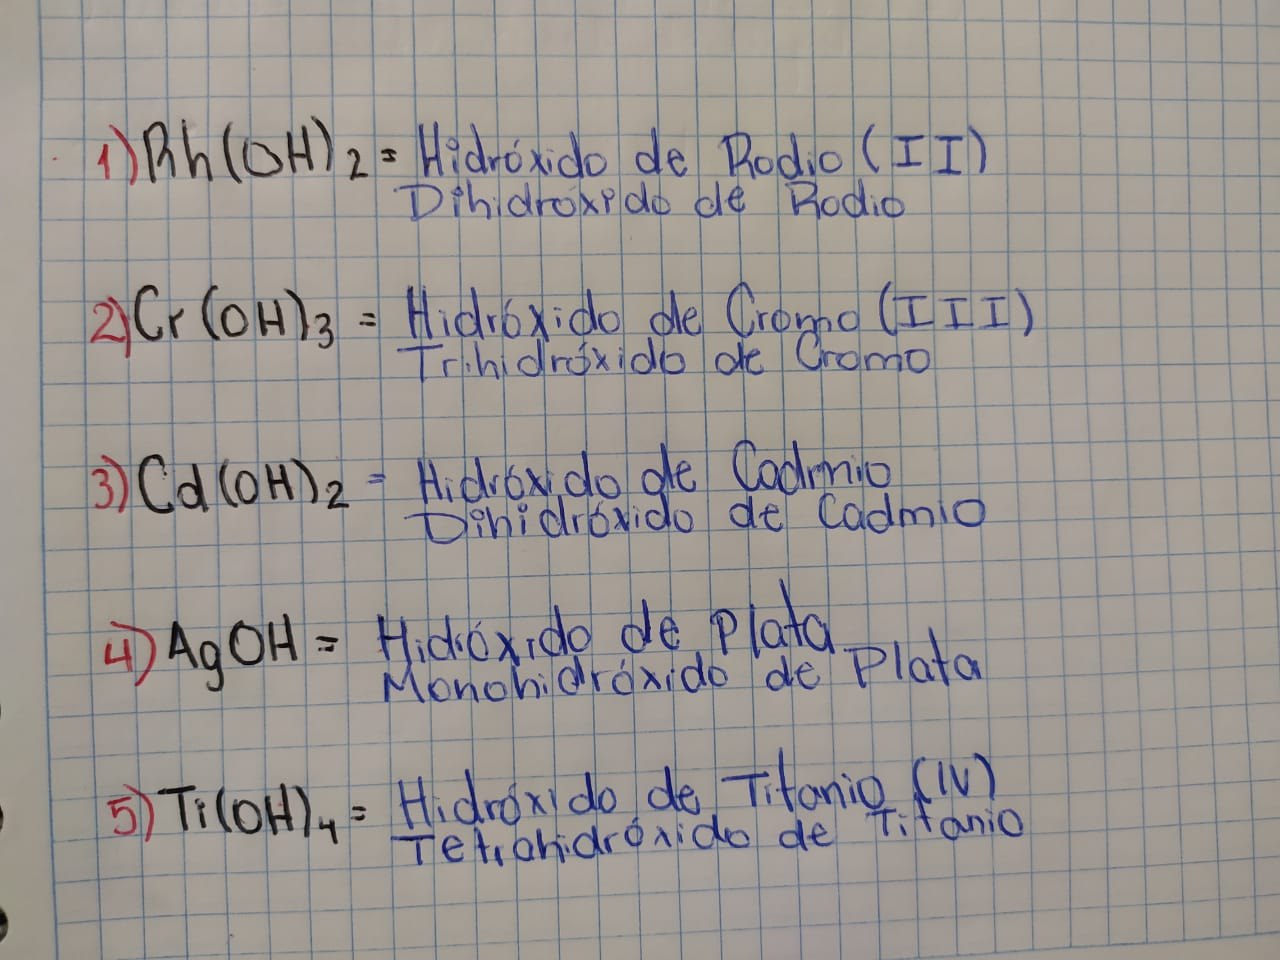 1) Rh(OH)2 = Hidróxido de Rodio (II)
Dihidróxido de Rodio
2) Cr(OH)3 = Hidróxido de Cromo (III)
Trihidróxido de Cromo
3) Cd(OH)2 = Hidróxido de Cadmio
Dihidróxido de Cadmio
4) AgOH = Hidróxido de Plata
Monohidróxido de Plata
5) Ti(OH)4 = Hidróxido de Titanio (IV)
Tetrahidróxido de Titanio